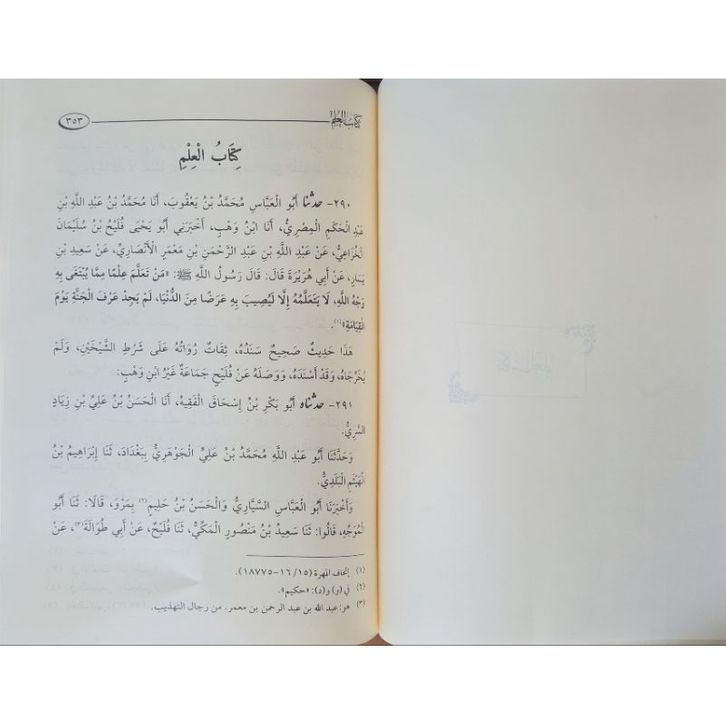 كتاب العلم
٣٥٣
كِتَابُ الْعِلْمِ
٢٩٠- حدثنا أَبُو الْعَبَّاسِ مُحَمَّدُ بْنُ يَعْقُوبَ، أَنَا مُحَمَّدُ بْنُ عَبْدِ اللَّهِ بْنِ
عَبْدِ الْحَكَمِ الْمِصْرِيُّ، أَنَا ابْنُ وَهْبٍ، أَخْبَرَنِي أَبُو يَحْيَى فُلَيْحُ بْنُ سُلَيْمَانَ
الْخُزَاعِيُّ، عَنْ عَبْدِ اللَّهِ بْنِ عَبْدِ الرَّحْمَنِ بْنِ مَعْمَرٍ الْأَنْصَارِيِّ، عَنْ سَعِيدِ بْنِ
يَسَارٍ، عَنْ أَبِي هُرَيْرَةَ قَالَ: قَالَ رَسُولُ اللَّهِ ﷺ: «مَنْ تَعَلَّمَ عِلْمًا مِمَّا يُبْتَغَى بِهِ
وَجْهُ اللَّهِ، لَا يَتَعَلَّمُهُ إِلَّا لِيُصِيبَ بِهِ عَرَضًا مِنَ الدُّنْيَا، لَمْ يَجِدْ عَرْفَ الْجَنَّةِ يَوْمَ
الْقِيَامَةِ»(١).
هَذَا حَدِيثٌ صَحِيحٌ سَنَدُهُ، ثِقَاتٌ رُوَاتُهُ عَلَى شَرْطِ الشَّيْخَيْنِ، وَلَمْ
يُخْرِجَاهُ، وَقَدْ أَسْنَدَهُ، وَوَصَلَهُ عَنْ فُلَيْحٍ جَمَاعَةٌ غَيْرُ ابْنِ وَهْبٍ:
٢٩١- حدثناه أَبُو بَكْرِ بْنُ إِسْحَاقَ الْفَقِيهُ، أَنَا الْحَسَنُ بْنُ عَلِيِّ بْنِ زِيَادٍ
السَّرِيُّ.
وَحَدَّثَنَا أَبُو عَبْدِ اللَّهِ مُحَمَّدُ بْنُ عَلِيٍّ الْجَوْهَرِيُّ بِبَغْدَادَ، ثَنَا إِبْرَاهِيمُ بْنُ
الْهَيْثَمِ الْبَلَدِيُّ.
وَأَخْبَرَنَا أَبُو الْعَبَّاسِ السَّيَّارِيُّ وَالْحَسَنُ بْنُ حَلِيمٍ(٢) بِمَرْوَ، قَالَا: ثَنَا أَبُو
الْمُوَجِّهِ، قَالُوا: ثَنَا سَعِيدُ بْنُ مَنْصُورٍ الْمَكِّيُّ، ثَنَا فُلَيْحٌ، عَنْ أَبِي طُوَالَةَ(٣)، عَنْ
(١) إتحاف المهرة (١٥/ ١٦-١٨٧٧٥).
(٢) في (و) و(د): «حكيم».
(٣) هو: عبد الله بن عبد الرحمن بن معمر. من رجال التهذيب.